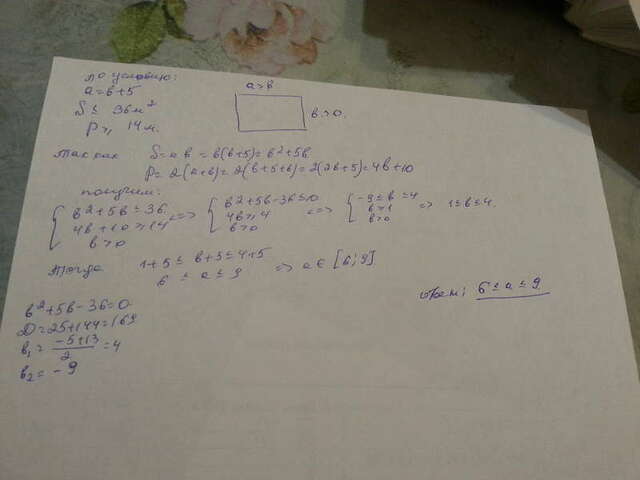 по условию:
a = b+5
S ≤ 36 м²
P ≥ 14 м.
a>b
b>0.
так как S = a b = b(b+5) = b²+5b
P = 2(a+b) = 2(b+5+b) = 2(2b+5) = 4b+10
получим:
{ b²+5b ≤ 36 <=> { b²+5b-36 ≤ 0 <=> { -9 ≤ b ≤ 4 => 1 ≤ b ≤ 4.
4b+10 ≥ 14 4b ≥ 4 b ≥ 1
b>0 b>0 b>0
Тогда 1+5 ≤ b+5 ≤ 4+5
6 ≤ a ≤ 9 => a ∈ [6; 9]
ответ: 6 ≤ a ≤ 9
b²+5b-36=0
D=25+144=169
b₁ = (-5+13)/2 = 4
b₂ = -9